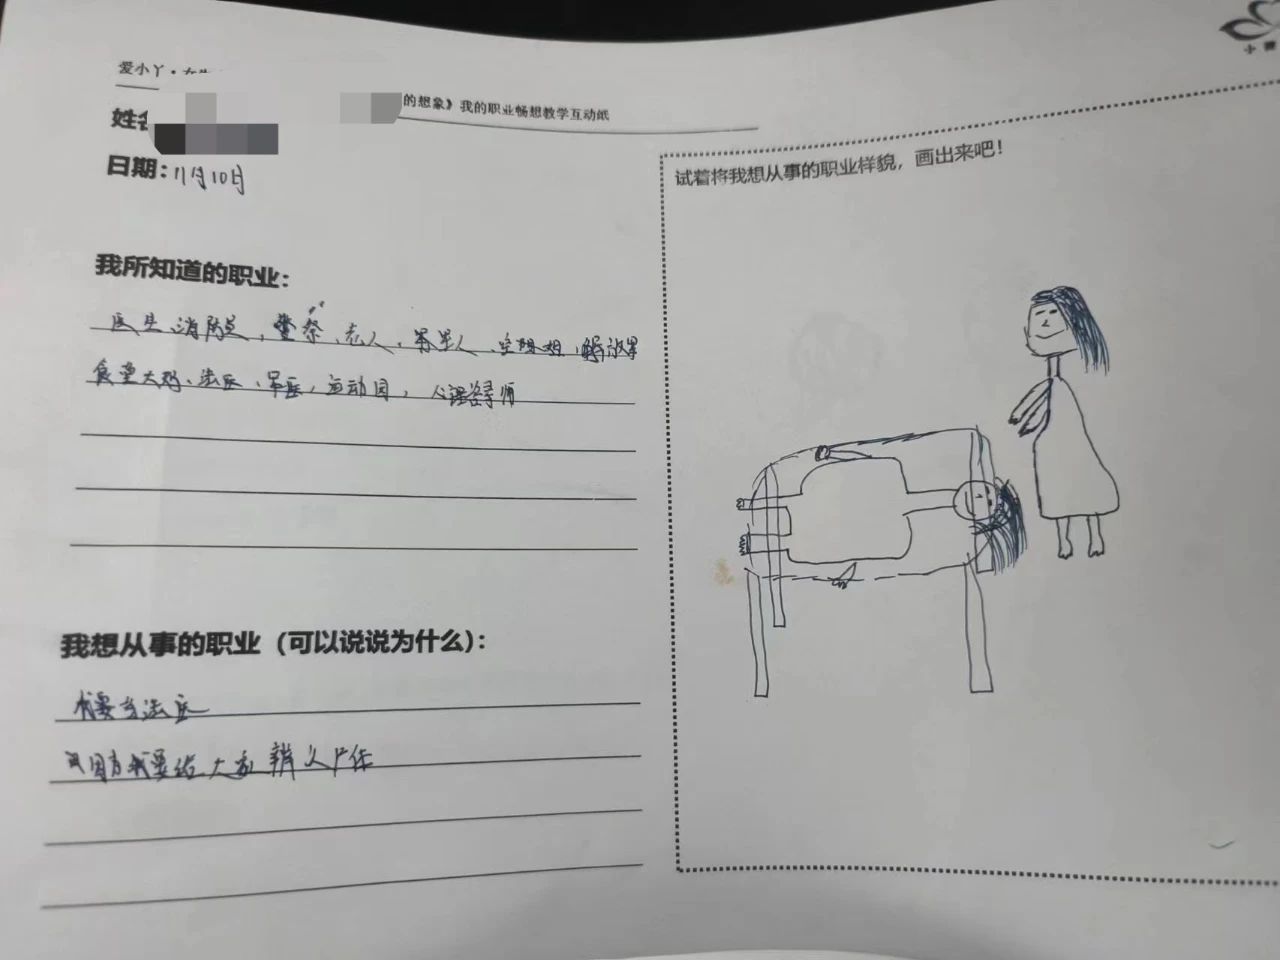 爱小丫·女
的想象》我的职业畅想教学互动纸
姓名
日期：11月10日
我所知道的职业：
医生、消防员，警察、志人、军军人、空姐姐、解放军
食堂大妈、法医、军医，运动园，心理咨导师
我想从事的职业（可以说说为什么）：
我要当法医
因为我要给大家辨人尸体
试着将我想从事的职业样貌，画出来吧！
小